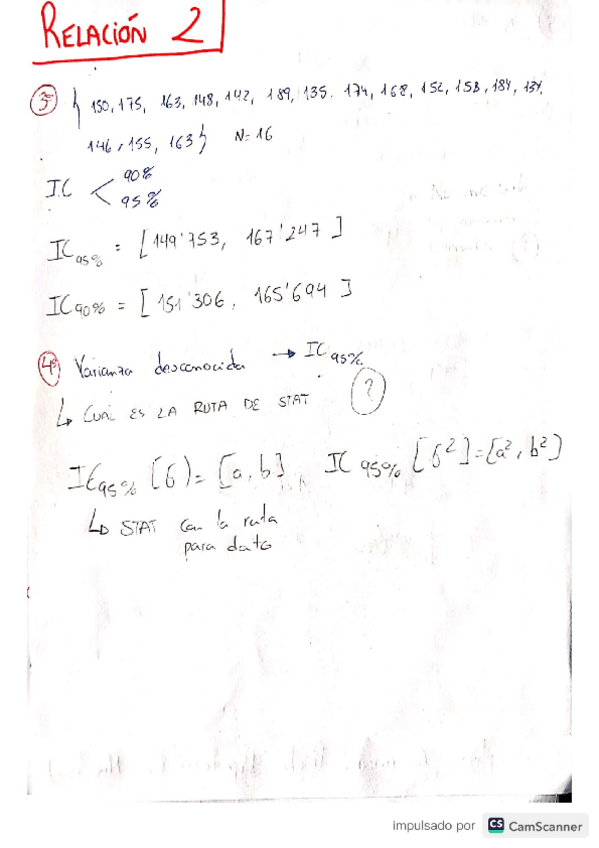 RELACIÓN 2
3º { 150, 175, 163, 148, 142, 189, 135, 174, 168, 152, 158, 184, 134,
146, 155, 163 } N=16
IC < 90%
95%
IC95% = [149'753, 167'247]
IC90% = [151'306, 165'694]
4º Varianza desconocida → IC95%.
↳ CUAL ES LA RUTA DE STAT ?
IC95% (6) = [a, b] IC 95% [6²] = [a², b²)
↳ STAT con la ruta
para dato
impulsado por CS CamScanner